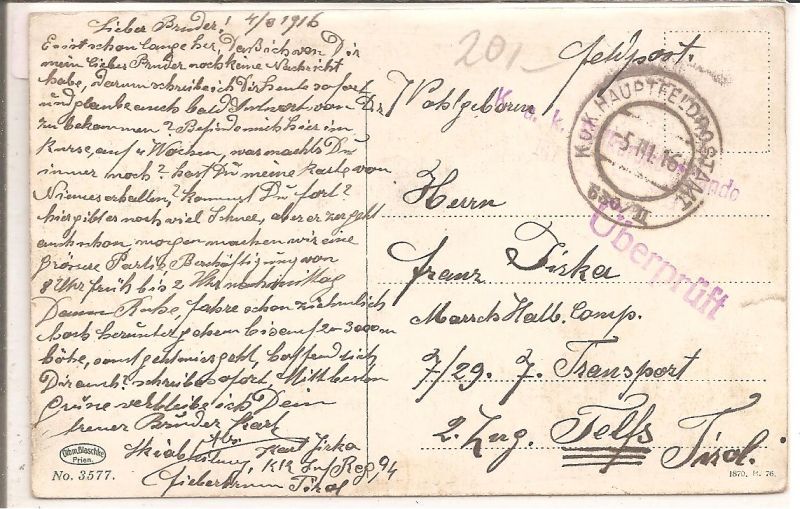 Lieber Bruder! 4/3 1916
Es ist schon lange her, Daß ich von Dir
mein lieber Bruder noch keine Nachricht
habe, darum schreibe ich Dir heute sofort
und glaube auch bald Antwort von Dir
zu bekommen? Befinde mich hier im
Kurse, auf 4 Wochen, was machst Du
immer noch? hast Du meine Karte von
erhalten? kommst Du fort?
hier gibt es noch viel Schnee, aber er zergeht
auch schon, morgen machen wir eine
grösere Partie Beschäftigung von
8 Uhr früh bis 2 Uhr nachmittag
Dann Ruhe, fahre schon ziemlich
hoch herunter gehen bis auf 2000 m
höhe, sonst geht mirs gut, hoffendlich
Dir auch? schreibe sofort, Mitt besten
Grüse verbleibe ich Dein
treuer Bruder Karl
Karl Jirka
Skiabteilung, KK Inf Reg. 94
Tirol
Gbm. Blaschke
Prien.
No. 3577.
201-
Feldpost.
Wohlgeboren
K. u. K. HAUPTFELDPOSTAMT
-5.III.16
630/II
Überprüft
Herrn
Franz Jirka
Marsch Halb. Comp.
7/29. 7. Transport
2. Zug. Telfs
Tirol.
1870. H. 76.